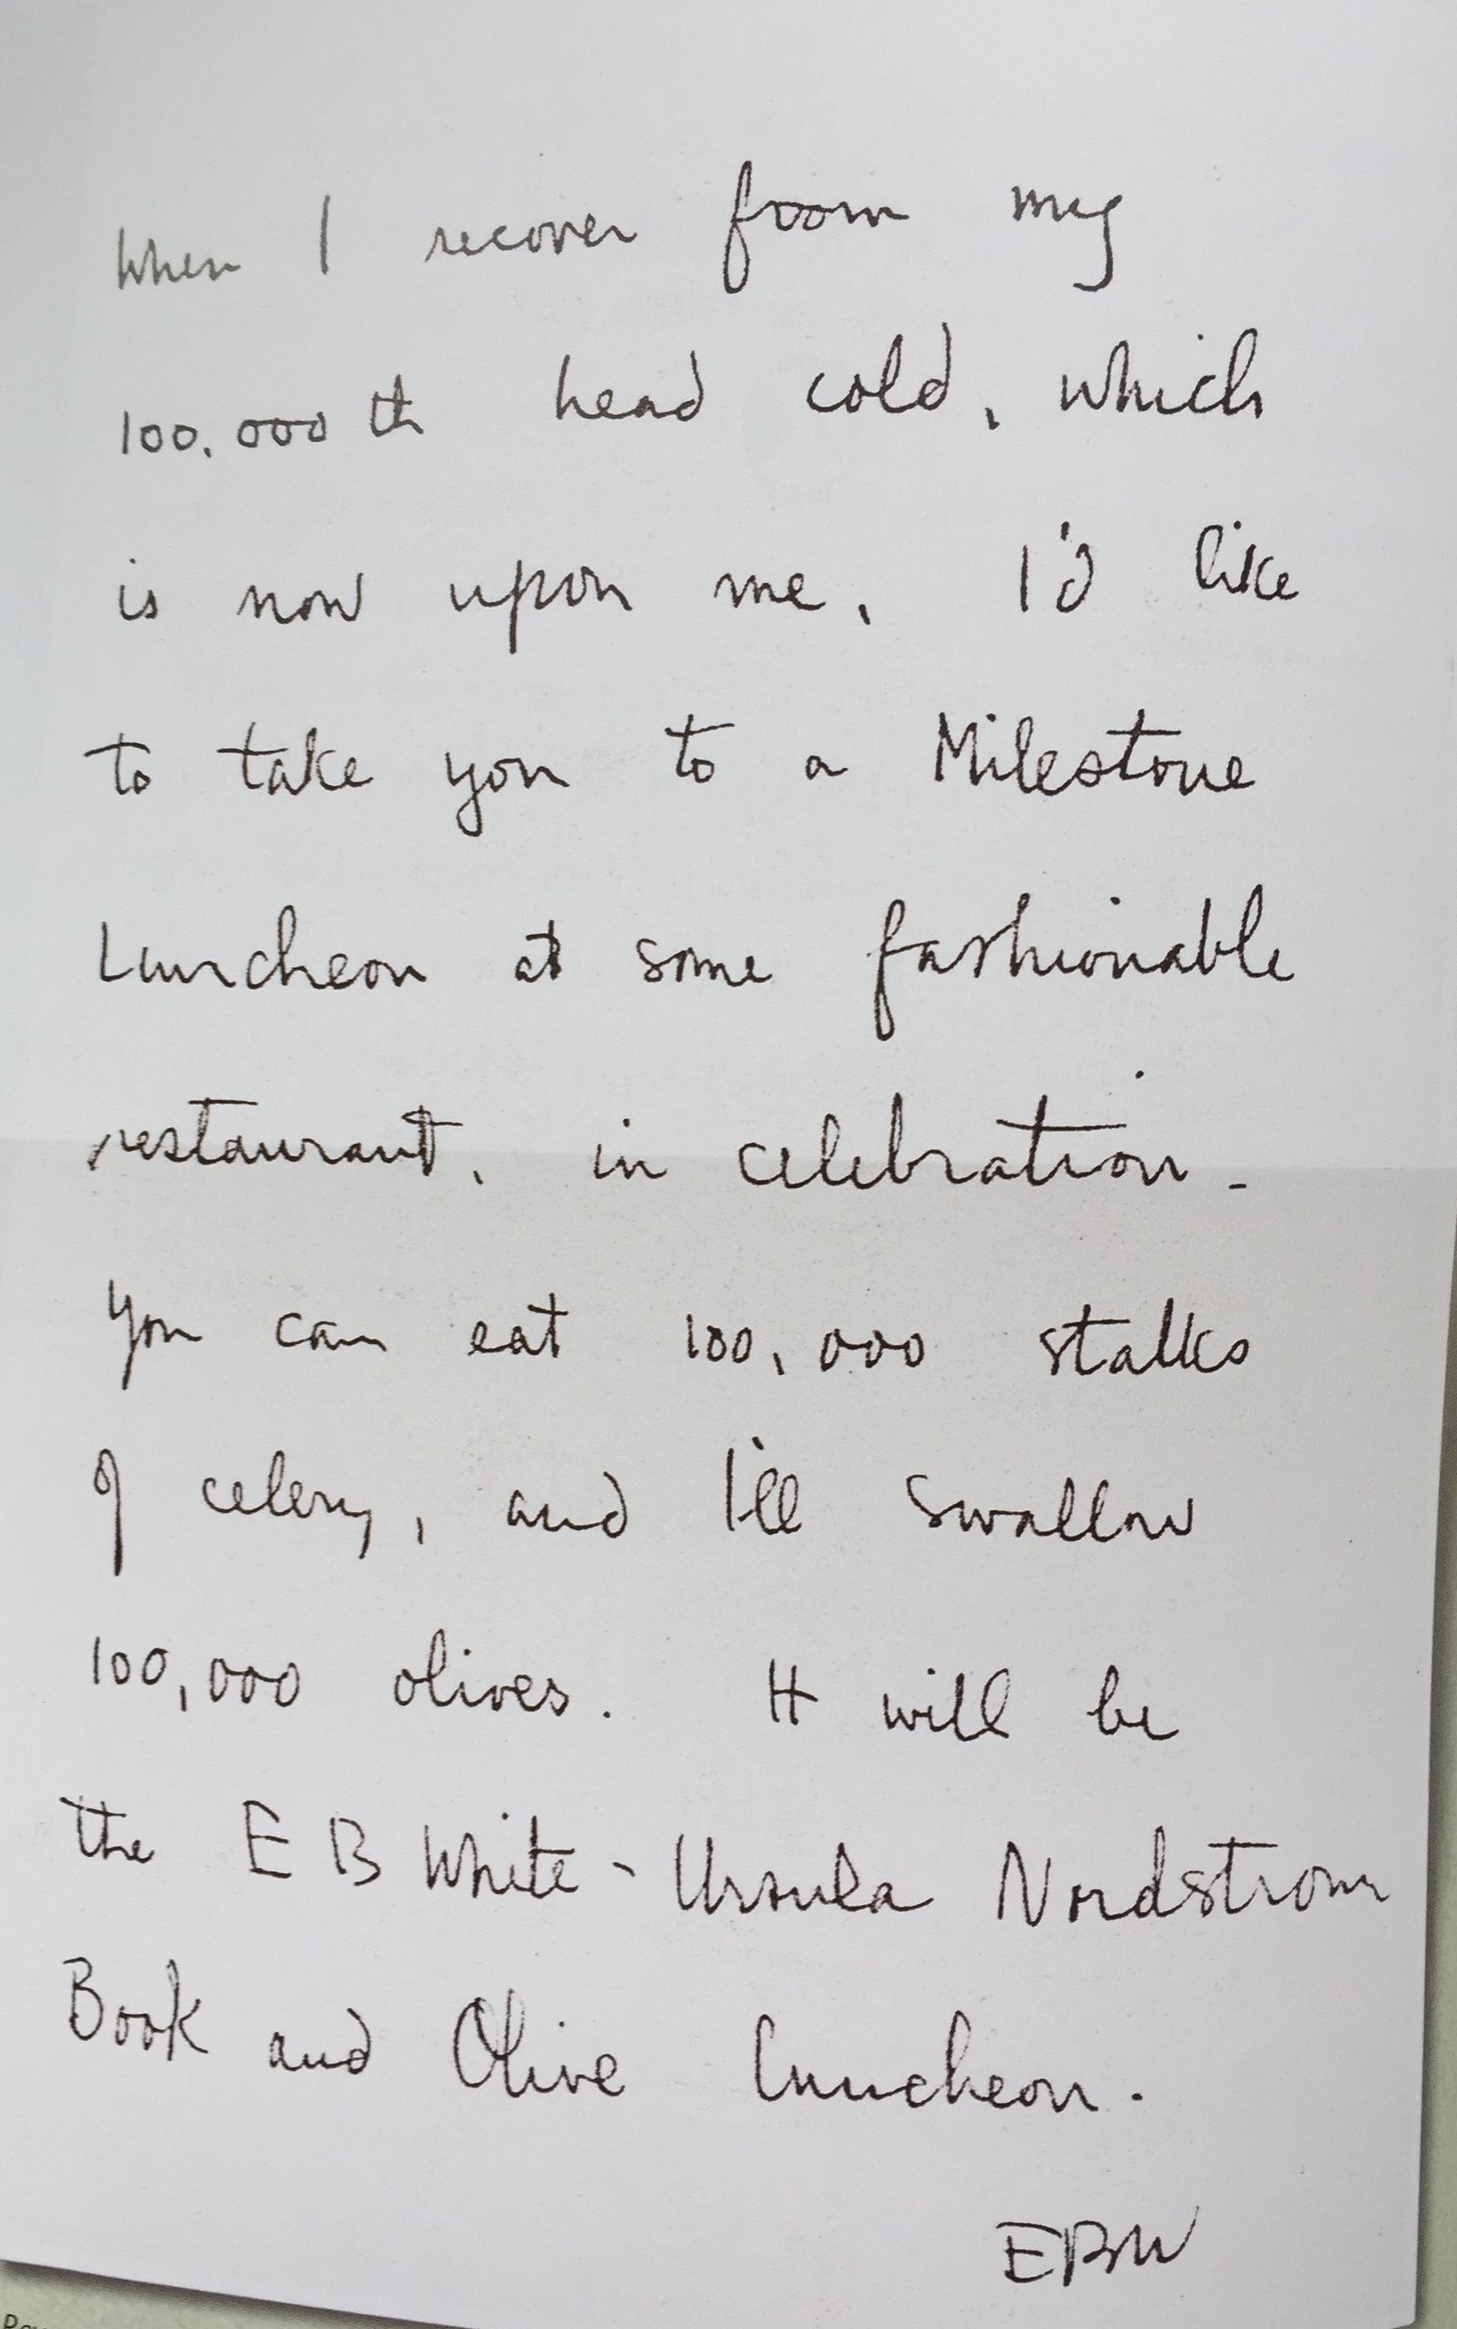 When I recover from my
100,000th head cold, which
is now upon me, I'd like
to take you to a Milestone
Luncheon at some fashionable
restaurant, in celebration.
You can eat 100,000 stalks
of celery, and I'll swallow
100,000 olives. It will be
the E B White - Ursula Nordstrom
Book and Olive Luncheon.
EBW